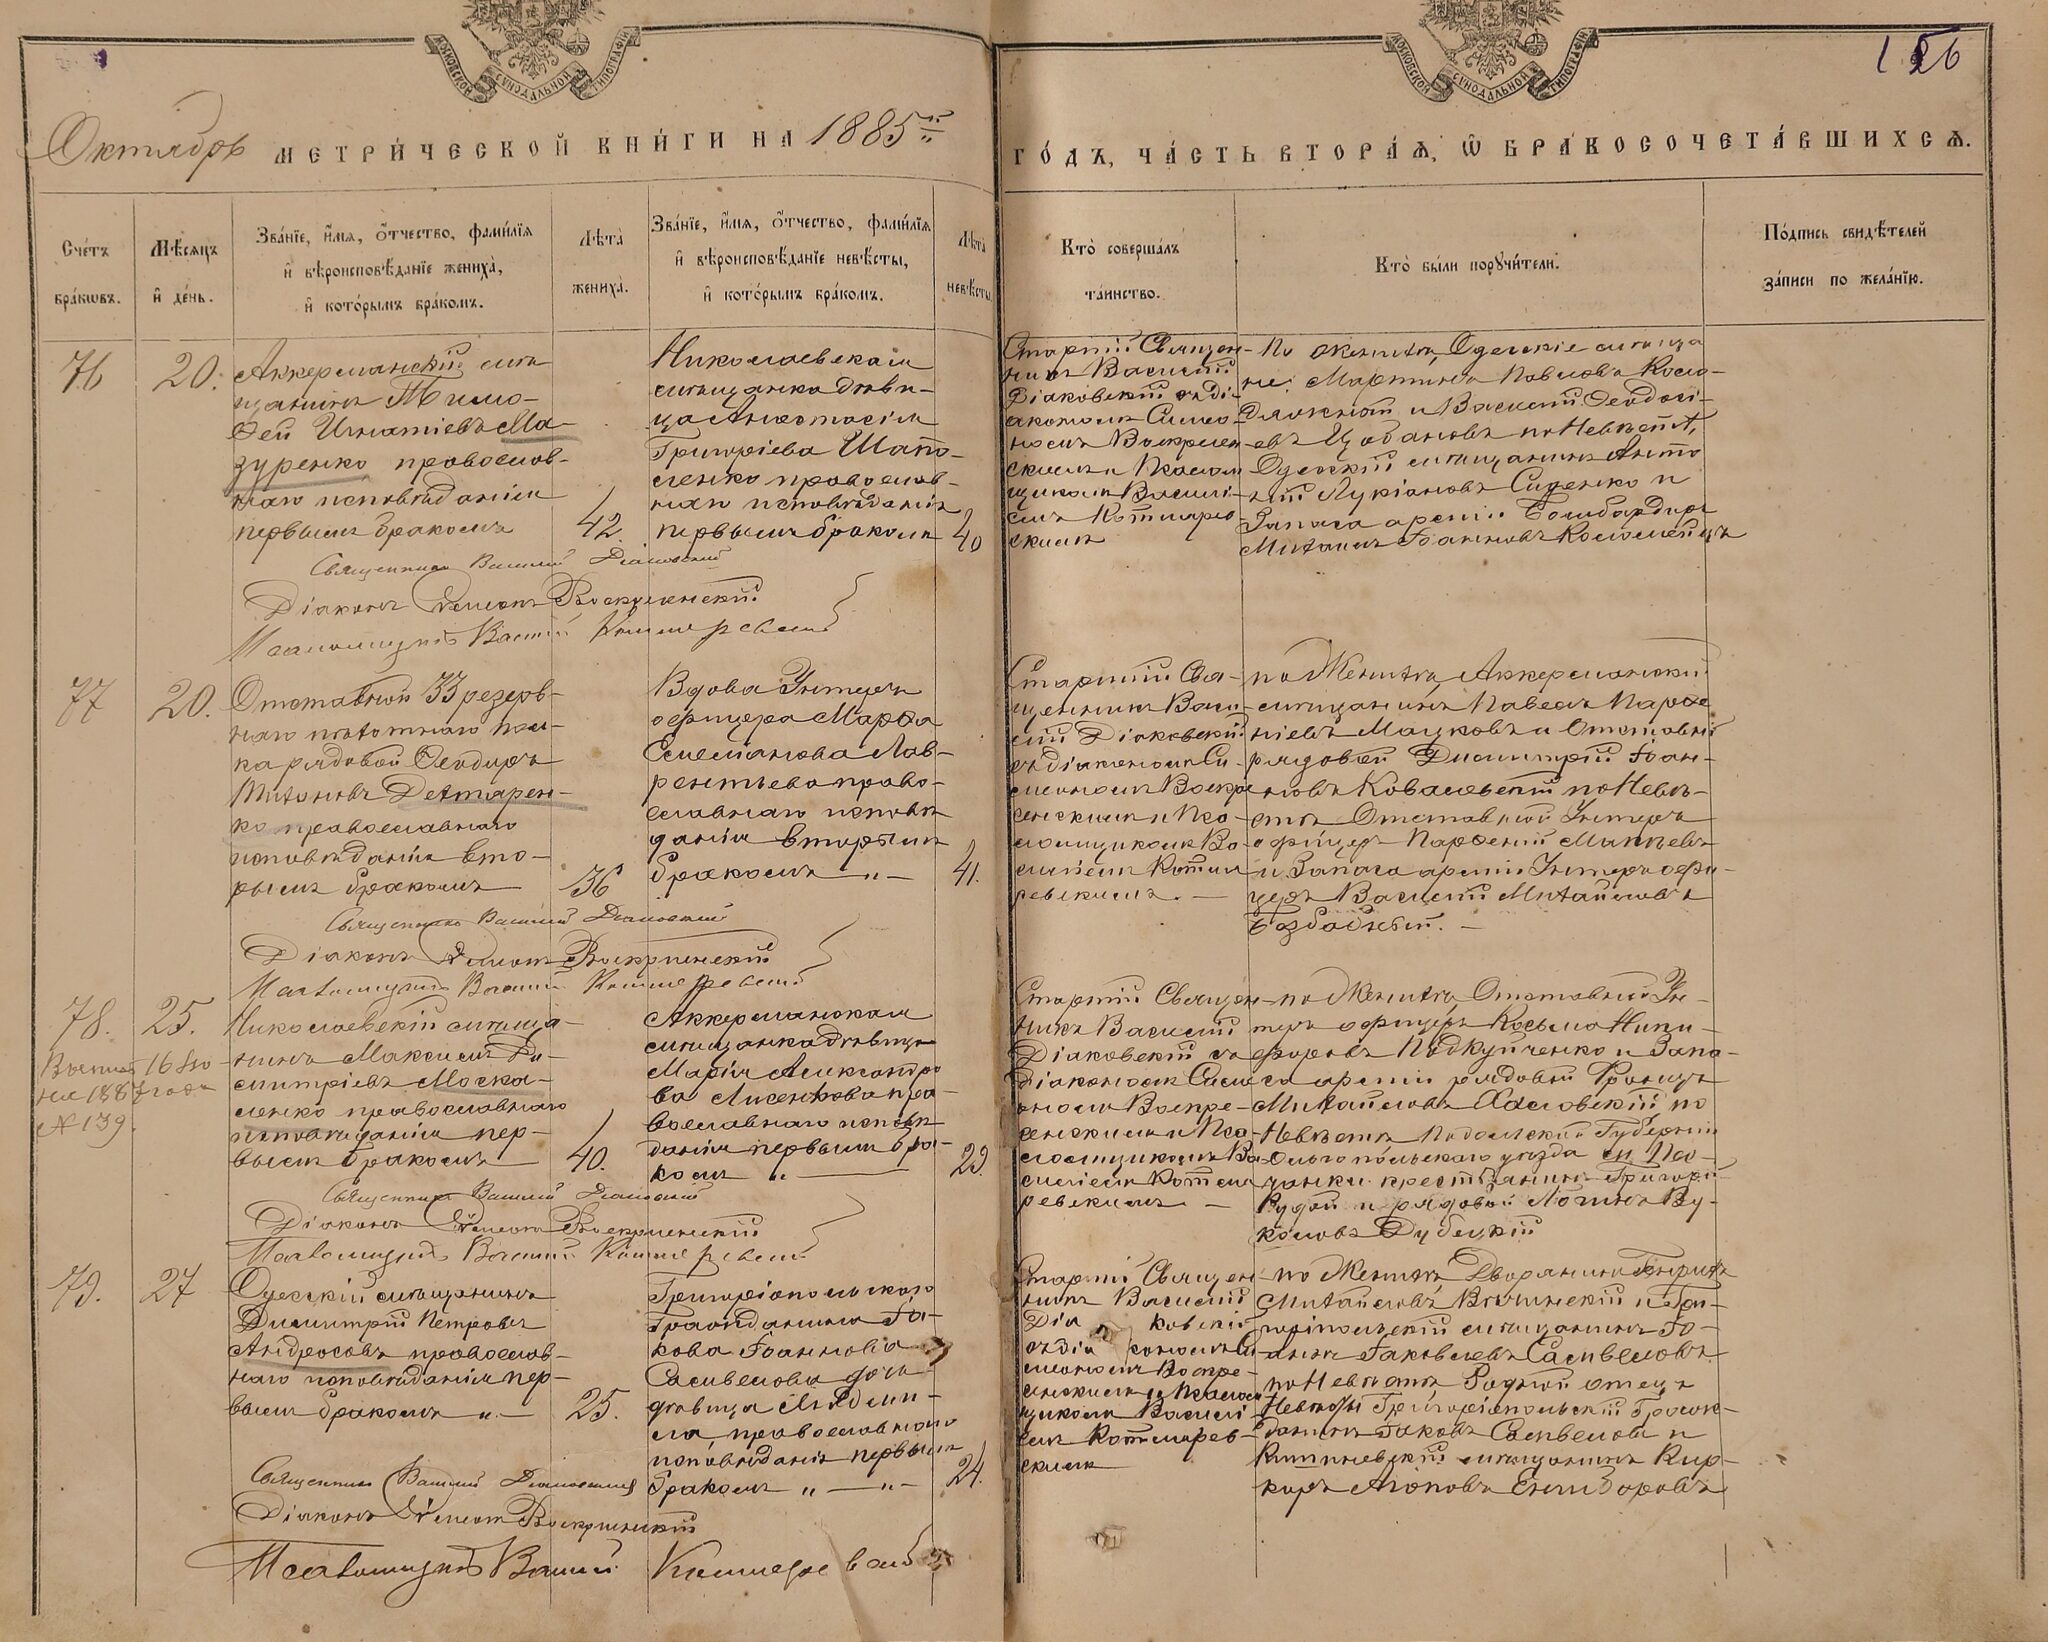 МОСКОВСКОЙ СѴНОДАЛЬНОЙ ТИПОГРАФІИ
МОСКОВСКОЙ СѴНОДАЛЬНОЙ ТИПОГРАФІИ
156
Октябрь МЕТРИ́ЧЕСКОЙ КНИ́ГИ НА 1885й
ГО́ДЪ, ЧА́СТЬ ВТОРА́Ѧ, Ѡ БРАКОСОЧЕТА́ВШИХСѦ.
Сче́тъ бра́кѡвъ.
Мѣ́сѧцъ и҆ де́нь.
Зва́нїе, и҆́мѧ, о҆́тчество, фами́лїѧ
и҆ вѣроисповѣ́данїе жениха̀,
и҆ кото́рымъ бра́комъ.
Лѣ́та жениха̀.
Зва́нїе, и҆́мѧ, о҆́тчество, фами́лїѧ
и҆ вѣроисповѣ́данїе невѣ́сты,
и҆ кото́рымъ бра́комъ.
Лѣ́та невѣ́сты
Кто̀ соверша́лъ
та́инство.
Кто̀ бы́ли порꙋчи́тели.
По́дпись свидѣ́телей
за́писи по жела́нїю.
76
20.
Аккерманскій мѣ-
щанинъ Тимо-
фей Игнатіевъ Ма-
зуренко православ-
наго исповѣданія
первымъ бракомъ
42.
Николаевская
мѣщанка дѣви-
ца Анастасія
Григоріева Шапо-
ленко православ-
наго исповѣданія
первымъ бракомъ
40
Старшій Священ-
никъ Василій
Діаковскій съ Ді-
акономъ Симео-
номъ Воскресен
скимъ и Псалом
щикомъ Василі-
емъ Котляре-
скимъ
По женихѣ, Одесскіе мѣща
не: Мартинъ Павловъ Косо-
и Василій Феодосі-
евъ по Невѣстѣ,
Одесскій мѣщанинъ Анто
ній Лукіановъ Сиденко и
Запаса арміи Бомбардиръ
Михаилъ Іоанновъ Коломеецъ
Священникъ Василій Діаковскій
Діаконъ Симеонъ Воскресенскій
Псаломщикъ Василій Котляревскій
77
20.
Отставной 33 резерв-
наго пѣхотнаго пол-
ка рядовой Феодоръ
Митановъ Дехтярен-
ко православнаго
исповѣданія вто-
рымъ бракомъ
36
Вдова Унтеръ
офицера Марфа
Емеліанова Лав-
рентьева право-
славнаго исповѣ
данія вторымъ
бракомъ „ —
41.
Старшій Свя-
щенникъ Васи-
лій Діаковскій
съ діакономъ Си-
меономъ Воскре
сенскимъ и Пса-
ломщикомъ Ва-
силіемъ Котля
ревскимъ. —
по Женихѣ, Аккерманскій
мѣщанинъ Павелъ Парфе
ніевъ Мацковъ и Отставній
рядовой Димитрій Іоан-
новъ Ковалевскій по Невѣ-
стѣ Отставной Унтеръ
офицеръ Парфеній Матвѣевъ
и Запаса арміи Унтеръ офи-
церъ Василій Михайловъ
Безбабный. —
Священникъ Василій Діаковскій
Діаконъ Симеонъ Воскресенскій
Псаломщикъ Василій Котляревскій
78.
25.
16 Ію
ня 1887 года
№ 139.
Николаевскій мѣща-
нинъ Максимъ Ди-
митріевъ Моска-
ленко православнаго
исповѣданія пер-
вымъ бракомъ
40.
Аккерманская
мѣщанка дѣвица
Марія Александро
ва Лисенкова пра
вославнаго исповѣ
данія первымъ бра-
комъ „ —
29.
Старшій Священ-
никъ Василій
Діаковскій съ
діакономъ Симе
ономъ Воскре-
сенскимъ и Пса-
ломщикомъ Ва-
силіемъ Котля
ревскимъ —
по Женихѣ, Отставной Ун-
теръ офицеръ Косьма Ники-
форовъ Подкуйченко и Запа-
са арміи рядовой Францъ
Михайловъ Хасловскій по
Невѣстѣ Подольской Губерніи
Ольгопольскаго уѣзда
крестьянинъ Григорій
Рудой и рядовой Логинъ Ву-
коловъ Дубецкій
Священникъ Василій Діаковскій
Діаконъ Симеонъ Воскресенскій
Псаломщикъ Василій Котляревскій
79.
27
Одесскій мѣщанинъ
Димитрій Петровъ
Андросовъ православ-
наго исповѣданія пер-
вымъ бракомъ „ —
25.
Григоріопольскаго
Гражданина Іа-
кова Іоаннова
Самвелова дочь
дѣвица Людми-
ла, православнаго
исповѣданія первымъ
бракомъ „ — „ —
24.
Старшій Священ-
никъ Василій
Діаковскій
съ Діакономъ Си
меономъ Воскре-
сенскимъ и Псалом
щикомъ Василі-
емъ Котлярев-
скимъ
по Женихѣ Дворянинъ Генрихъ
Михайловъ и Гри-
горіопольскій мѣщанинъ Іо-
аннъ Іаковлевъ Самвеловъ
по Невѣстѣ Родной отецъ
Невѣсты Григоріопольскій Граж-
данинъ Іаковъ Самвеловъ и
Кишиневскій мѣщанинъ Кир-
коръ
Священникъ Василій Діаковскій
Діаконъ Симеонъ Воскресенскій
Псаломщикъ Василій Котляревскій